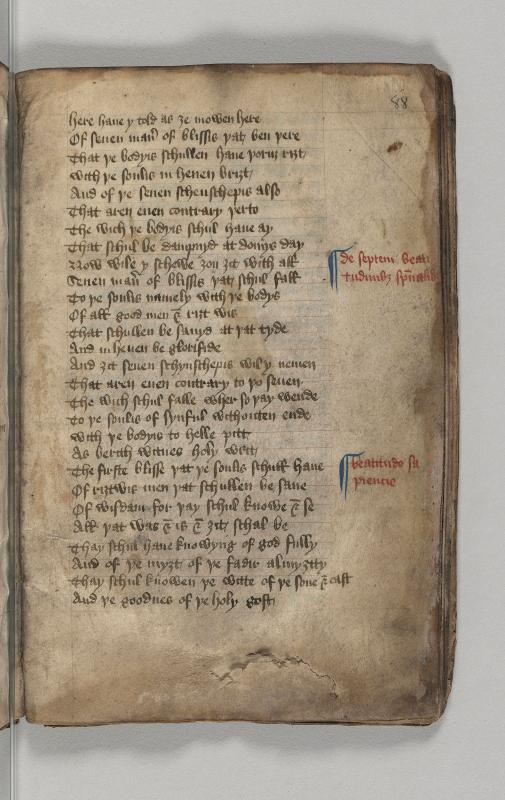 88
here haue y told as ȝe mowen here
Of seuen man̄ of blissis þat ben þere
That þe bodyis schullen haue þoruȝ riȝt
With þe soulis in heuen briȝt
And of þe seuen schenschepis also
That aren euen contrary þerto
The wich þe bodyis schul haue ay
That schul be dampnyd at domys day
Now wile y schewe ȝou ȝit with all
Seuen man̄ of blissis þat schul fall
To þe soulis namely with þe bodys
Of all good men & riȝt wis
That schullen be sauyd at þat tyde
And in heuen be glorifide
And ȝit seuen schynschepis wil y neuen
That aren euen contrary to þo seuen
The wich schul falle wher so þay wende
To þe soulis of synful withouten ende
With þe bodyis to helle pitt
As berith witnes holy writt
The firste blisse þat þe soulis schull haue
Of riȝtwis men þat schullen be saue
Of wisdam for þay schul knowe & se
All þat was & is & ȝit schal be
Thay schul haue knowyng of god fully
And of þe myȝt of þe fadir almyȝtty
Thay schul knowen þe witte of þe sone & cast
And þe goodnes of þe holy gost
¶ de septem beati
tudinibȝ
¶ beatitudo sa
piencie